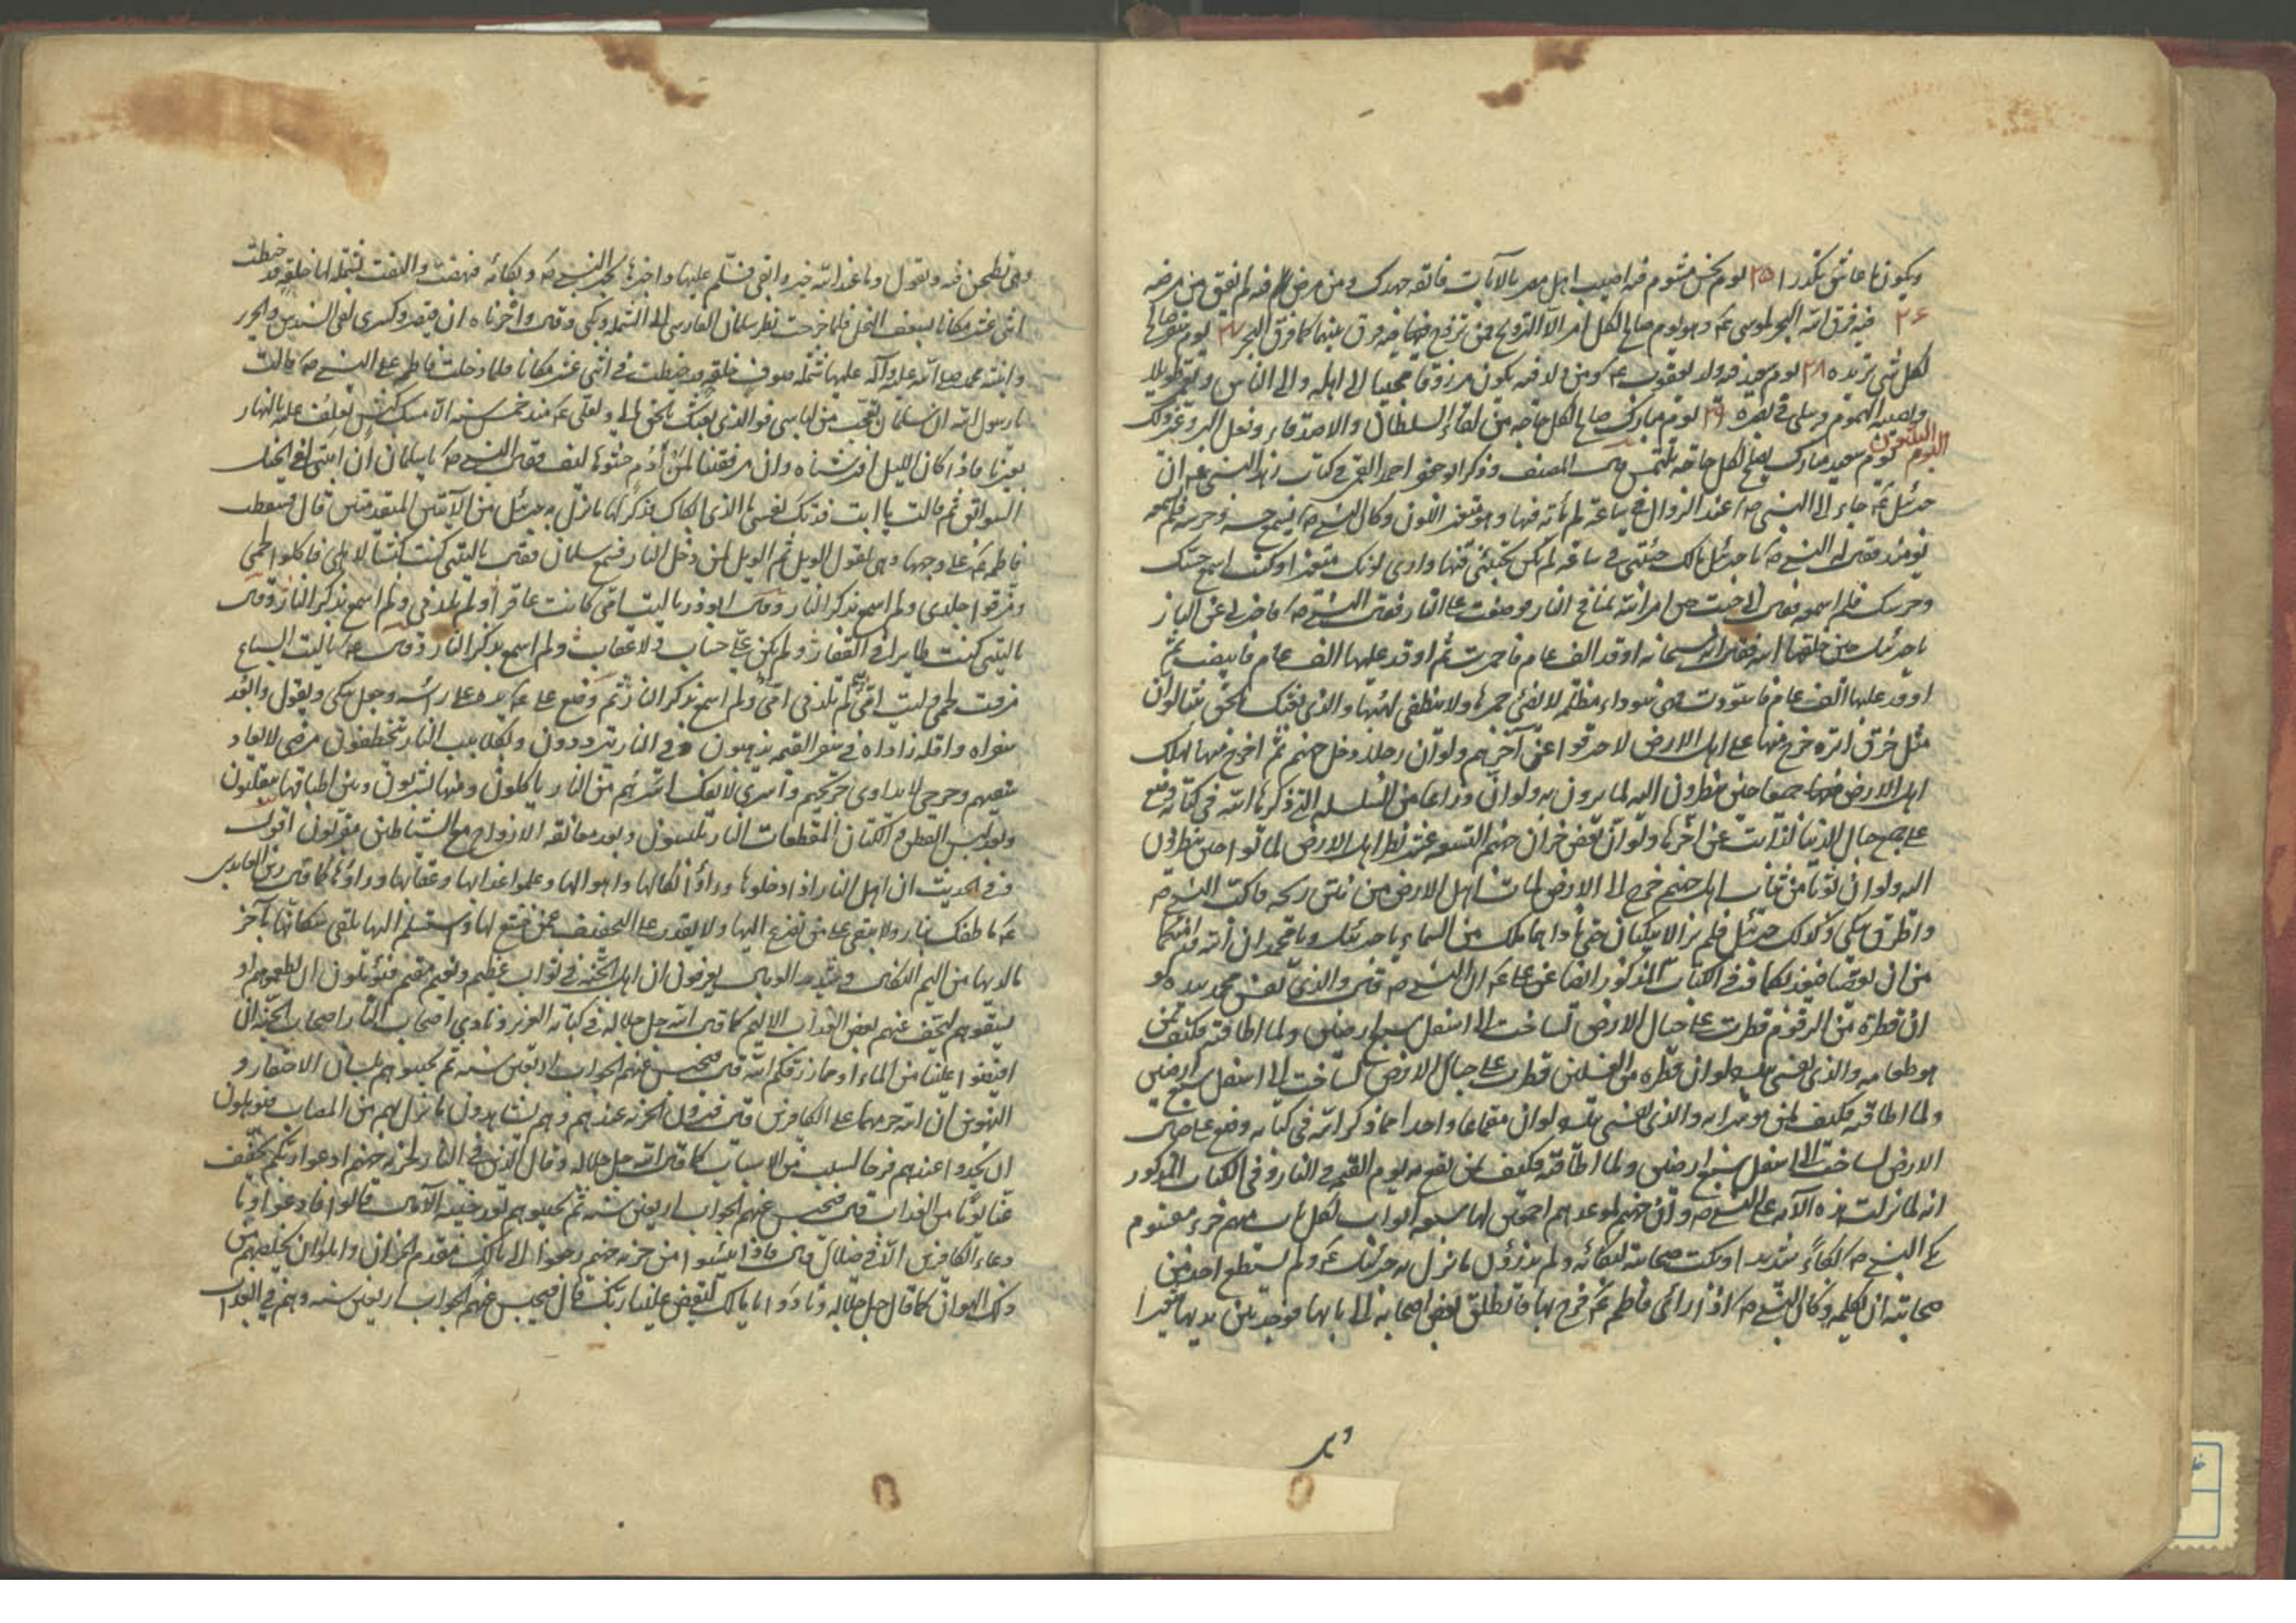 ويكون ما عاش بكدر ا ٢٥ يوم نحس مشوم فيه اصيب اهل مصر بالآيات فاتقه جهدك ومن مرض فيه لم يفق من مرضه
٢٦ فيه فرق الله البحر لموسى ع وهو يوم صالح لكل امر الا التزويج فمن تزوج فيه فرق بينهما كما فرق البحر ٢٧ يوم صالح
لكل شئ تريده ٢٨ يوم سعيد فيه ولد يعقوب ع ومن ولد فيه يكون مرزوقا محببا الى اهله والى الناس ويعمر طويلا
ويصيبه الهموم ويبتلى في بصره ٢٩ يوم مبارك صالح لكل حاجة من لقاء السلطان والاصدقاء وفعل البر وغير ذلك
اليوم الثلثون يوم سعيد مبارك يصلح لكل حاجة تلتمس المصنف وذكر ابو جعفر احمد القمي في كتاب زهد النبي عنه ان
جبرئيل ع جاء الى النبي ص عند الزوال في ساعة لم يأته فيها وهو متغير اللون وكان النبي ص يسمع حسه وجرسه فلم يسمعه
يومئذ فقال له النبي ص يا جبرئيل مالك جئتني في ساعة لم تكن تجيئني فيها وارى لونك متغيرا وكنت اسمع حسك
وجرسك فلم اسمعه فقال اني جئت حين امر الله بمنافخ النار فوضعت على النار فقال النبي ص فاخبرني عن النار
يا جبرئيل حين خلقها الله فقال انه سبحانه اوقد الف عام فاحمرت ثم اوقد عليها الف عام فابيضت ثم
اوقد عليها الف عام فاسودت فهي سوداء مظلمة لا يضئ جمرها ولا ينطفي لهبها والذي بعثك بالحق نبيا لو ان
مثل خرق ابرة خرج منها على اهل الارض لاحترقوا عن آخرهم ولو ان رجلا دخل جهنم ثم اخرج منها لهلك
اهل الارض جميعا حين ينظرون اليه لما يرون به ولو ان ذراعا من السلسلة التي ذكرها الله في كتابه وضع
على جميع جبال الدنيا لذابت عن آخرها ولو ان بعض خزان جهنم التسعة عشر نظر اهل الارض لماتوا حين ينظرون
اليه ولو ان ثوبا من ثياب اهل جهنم خرج الى الارض لمات اهل الارض من نتن ريحه فاكب النبي ص
واطرق يبكي وكذلك جبرئيل فلم يزالا يبكيان حتى ناداهما ملك من السماء يا جبرئيل ويا محمد ان الله قد امنكما
من ان تعصيا فيعذبكما وفي الكتاب المذكور ايضا عن علي ع ان النبي ص قال والذي نفس محمد بيده لو
ان قطرة من الزقوم قطرت على جبال الارض لساخت الى اسفل سبع ارضين ولما اطاقته فكيف بمن
هو طعامه والذي نفسي بيده لو ان قطرة من الغسلين قطرت على جبال الارض لساخت الى اسفل سبع ارضين
ولما اطاقته فكيف بمن هو شرابه والذي نفسي بيده لو ان مقماعا واحدا مما ذكر الله في كتابه وضع على جبال
الارض لساخت الى اسفل سبع ارضين ولما اطاقته فكيف بمن يقمع به يوم القيمة في النار وفي الكتاب المذكور
انه لما نزلت هذه الآية على النبي ص وان جهنم لموعدهم اجمعين لها سبعة ابواب لكل باب منهم جزء مقسوم
بكى النبي ص بكاء شديدا وبكت صحابته لبكائه ولم يدروا ما نزل به جبرئيل ع ولم يستطع احد من
صحابته ان يكلمه وكان النبي ص اذا رأى فاطمة ع فرح بها فانطلق بعض اصحابه الى بابها فوجد بين يديها شعيرا
وهي
وهي تطحن فيه وتقول وما عند الله خير وابقى فسلم عليها واخبرها بخبر النبي ص وبكائه فنهضت والتفت بشملة لها خلقة قد خيطت
اثنى عشر مكانا بسعف النخل فلما خرجت نظر سلمان الفارسي الى الشملة وبكى وقال واحزناه ان قيصر وكسرى لفي السندس والحرير
وابنة محمد صلى الله عليه وآله عليها شملة صوف خلقة قد خيطت في اثنى عشر مكانا فلما دخلت فاطمة على النبي ص قالت
يا رسول الله ان سلمان تعجب من لباسي فو الذي بعثك بالحق مالي ولعلي ع منذ خمس سنين الا مسك كبش نعلف عليه بالنهار
بعيرنا فاذا كان الليل افترشناه وان مرفقتنا لمن ادم حشوها ليف فقال النبي ص يا سلمان ان ابنتي لفي الخيل
السوابق ثم قالت يا ابت فديتك نفسي ما الذي ابكاك فذكر لها ما نزل به جبرئيل من الآيتين المتقدمتين قال فسقطت
فاطمة ع على وجهها وهي تقول الويل ثم الويل لمن دخل النار فسمع سلمان فقال يا ليتني كنت كبشا لاهلي فاكلوا لحمي
ومزقوا جلدي ولم اسمع بذكر النار وقال ابو ذر يا ليت امي كانت عاقرا ولم تلدني ولم اسمع بذكر النار وقال
يا ليتني كنت طايرا في القفار ولم يكن علي حساب ولا عقاب ولم اسمع بذكر النار وقال ع يا ليت السباع
مزقت لحمي وليت امي لم تلدني ولم اسمع بذكر النار ثم وضع علي ع يده على رأسه وجعل يبكي ويقول وابعد
سفراه واقلة زاداه في سفر القيمة يذهبون وفي النار يترددون وبكلاليب النار يتخطفون مرضى لا يعاد
سقيمهم وجرحى لا يداوى جريحهم واسرى لا يفك اسيرهم من النار ياكلون ومنها يشربون وبين اطباقها يتقلبون
وبعد لبس القطن والكتان المقطعات النار يلبسون وبعد معانقة الازواج مع الشياطين مقرنون اقول
وفي الحديث ان اهل النار اذا دخلوها ورأوا نكالها واهوالها وعلموا عذابها وعقابها ورأوها كما قال زين العابدين
ع ما ظنك بنار لا تبقي على من تضرع اليها ولا يقدر على التخفيف عمن خشع لها واستسلم اليها تلقي سكانها باحر
ما لديها من اليم النكال وشديد الوبال يعرفون ان اهل الجنة في ثواب عظيم ونعيم مقيم فيؤملون ان يطعموهم او
يسقوهم ليخفف عنهم بعض العذاب الاليم كما قال الله جل جلاله في كتابه العزيز ونادى اصحاب النار اصحاب الجنة ان
افيضوا علينا من الماء او مما رزقكم الله قال فيحبس عنهم الجواب اربعين سنة ثم يجيبوهم بلسان الاحتقار و
التهوين ان الله حرمهما على الكافرين قال فيرون الخزنة عندهم وهم يشاهدون ما نزل بهم من المصاب فيؤملون
ان يجدوا عندهم فرحا بسبب من الاسباب كما قال الله جل جلاله وقال الذين في النار لخزنة جهنم ادعوا ربكم يخفف
عنا يوما من العذاب قال فيحبس عنهم الجواب اربعين سنة ثم يجيبوهم بعد خيبة الآمال قالوا فادعوا وما
دعاء الكافرين الا في ضلال قال فاذا يئسوا من خزنة جهنم رجعوا الى مالك مقدم الخزان واملوا ان يخلصهم من
ذلك الهوان كما قال جل جلاله ونادوا يا مالك ليقض علينا ربك قال فيحبس عنهم الجواب اربعين سنة وهم في العذاب